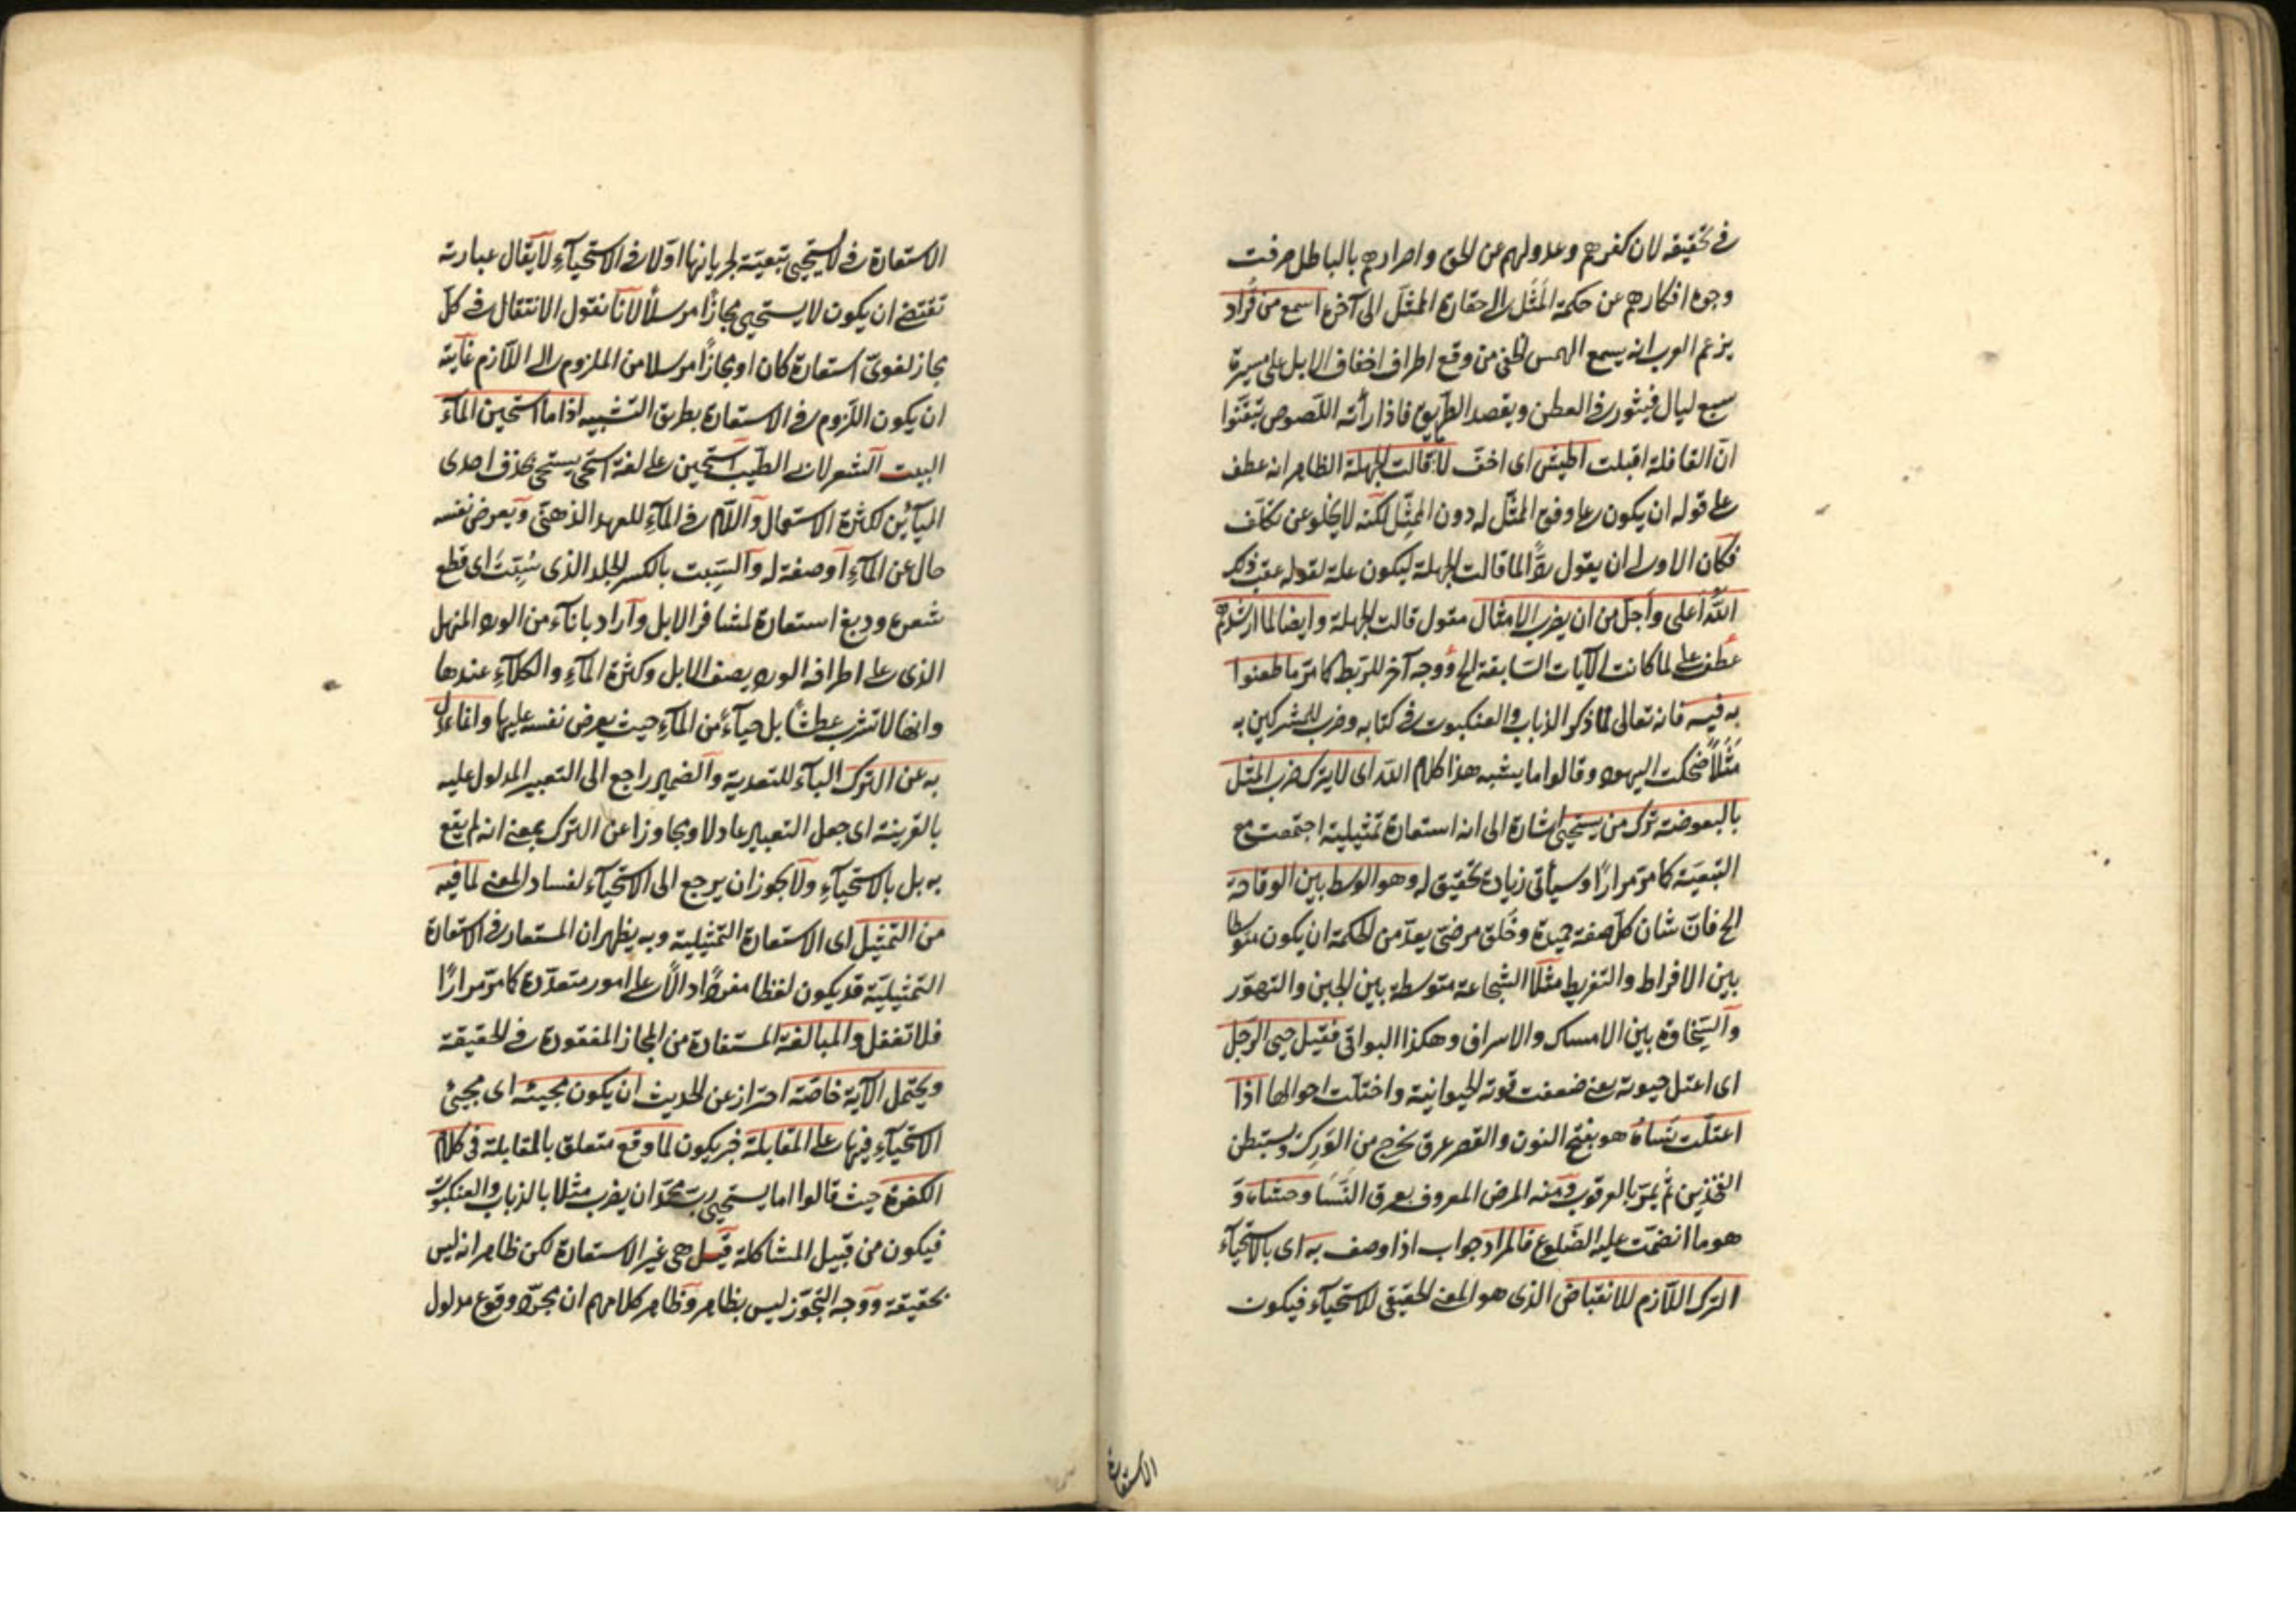 في تحقيقه لان كفرهم وعدولهم عن الحق واصرارهم بالباطل صرفت
وجوه افكارهم عن حكمة المَثَل الى حقارة الممثَّل الى آخره اسمع من قُراد
يزعم العرب انه يسمع الهمس الخفي من وقع اطراف اخفاف الابل على مسيرة
سبع ليال فيثور في العطن ويقصد الطريق فاذا رأته اللصوص تيقّنوا
انّ القافلة اقبلت اطيش اى اخفّ لا ما قالت الجهلة الظاهر انه عطف
على قوله ان يكون على وفق الممثَّل له دون الممثِّل لكنه لا يخلو عن تكلّف
فكان الاولى ان يقول ردًّا لما قالت الجهلة ليكون علة لقوله عقب ذلك
اللّٰه اعلى واجلّ من ان يضرب الامثال مقول قالت الجهلة وايضا لما ارشدهم
عطف على لما كانت الآيات السّابقة الخ ووجه آخر للربط كما مرّ ما طعنوا
به فيه فانه تعالى لمّا ذكر الذباب والعنكبوت في كتابه وضرب للمشركين به
مَثَلاً ضحكت اليهود وقالوا ما يشبه هذا كلام اللّه اى لا يترك ضرب المثل
بالبعوضة ترك من يستحيى اشارة الى انه استعارة تمثيلية اجتمعت مع
التبعيّة كما مرّ مرارًا وسيأتى زيادة تحقيق له وهو الوسط بين الوقاحة
الخ فانّ شان كلّ صفة حميدة وخُلق مرضىّ يعدّ من الحكمة ان يكون متوسطا
بين الافراط والتفريط مثلًا الشجاعة متوسطة بين الجبن والتهوّر
والسّخاوة بين الامساك والاسراف وهكذا البواقى فقيل حيى الرّجل
اى اعتل حيوته يعنى ضعفت قوته الحيوانية واختلّت احوالها اذا
اعتلّت نَساه هو بفتح النون والقصر عرق يخرج من الوَرِك ويستبطن
الفخذين ثم يمرّ بالعرقوب ومنه المرض المعروف بعرق النَّسَا وحشاه و
هو ما انضمّت عليه الضّلوع فالمراد جواب اذا وصف به اى بالاستحيآء
الترك اللّازم للانقباض الذى هو المعنى الحقيقى للاستحيآء فيكون
الاستعارة
الاستعارة في لا يستحيى تبعيّة لجريانها اوّلا في الاستحيآءِ لا يقال عبارته
تقتضى ان يكون لا يستحيى مجازًا مرسلًا لانّا نقول الانتقال في كلّ
مجاز لغوىّ استعارة كان او مجازًا مرسلا من الملزوم الى اللّازم غاية
ان يكون اللّزوم في الاستعارة بطريق التشبيه اذا ما استحين المآء
البيت الشعر لابى الطيّب استحين على لغة استحى يستحى بحذف احدى
اليآئين لكثرة الاستعمال واللّام في المآءِ للعهد الذهنىّ ويعرض نفسه
حال عن المآءِ او صفة له والسِّبت بالكسر الجلد الذى سُبِتَ اى قطع
شعره ودبغ استعارة لمشافر الابل واراد باناء من الورد المنهل
الذى على اطرافه الورد يصف الابل وكثرة المآءِ والكلآءِ عندها
وانها لا تشرب عطشًا بل حيآءً من المآءِ حيث يعرض نفسه عليها وانما عدل
به عن الترك البآء للتعدية والضمير راجع الى التعبير المدلول عليه
بالقرينة اى جعل التعبير عادلا ومجاوزا عن الترك بمعنى انه لم يقع
به بل بالاستحيآءِ ولا يجوز ان يرجع الى الاستحيآء لفساد المعنى لما فيه
من التمثيل اى الاستعارة التمثيلية وبه يظهر ان المستعار في الاستعارة
التمثيليّة قد يكون لفظا مفردًا دالًّا على امور متعدّدة كما مرّ مرارًا
فلا تغفل والمبالغة المستفادة من المجاز المفقودة في الحقيقة
ويحتمل الآية خاصّة احتراز عن الحديث ان يكون مجيئه اى مجيئ
الاستحيآءِ فيها على المقابلة فيكون لما وقع متعلق بالمقابلة في كلام
الكفرة حيث قالوا اما يستحيى ربّ محمّد ان يضرب مثلا بالذباب والعنكبوت
فيكون من قبيل المشاكلة قيل هى غير الاستعارة لكن ظاهر انه ليس
بحقيقة ووجه التجوّز ليس بظاهر وظاهر كلامهم ان مجرّد وقوع مدلول